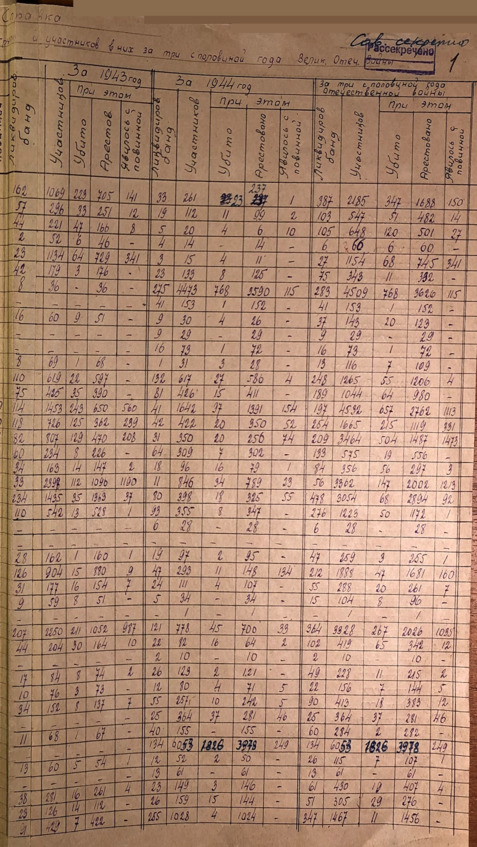 Справка
и участников в них за три с половиной года Велик. Отеч. Войны
Сов. секретно
Рассекречено
1
За 1943 год
За 1944 год
За три с половиной года Отечественной войны
При этом
При этом
При этом
банд
Участников
Убито
Арестов
Явилось с повинной
Ликвидиров банд
Участников
Убито
Арестовано
Явилось с повинной
Ликвидиров банд
Участников
Убито
Арестовано
Явилось с повинной
237
162 1069 223 705 141 33 261 23 1 387 2185 347 1688 150
57 296 33 251 12 19 112 11 99 2 103 547 51 482 14
44 221 47 166 8 5 20 4 6 10 105 648 120 501 27
2 52 6 46 - 4 14 - 14 - 6 66 6 60 -
23 1134 64 729 341 3 15 4 11 - 27 1154 68 745 341
42 179 3 176 - 23 133 8 125 - 75 343 11 332 -
8 36 - 36 - 275 4473 768 3590 115 283 4509 768 3626 115
41 153 1 152 - 41 153 1 152 -
16 60 9 51 - 9 30 4 26 - 37 143 20 123 -
- - - - - 9 29 - 29 - 9 29 - 29 -
- - - - - 16 73 1 72 - 16 73 1 72 -
8 69 1 68 - 1 31 3 28 - 13 116 7 109 -
110 619 22 597 - 132 617 27 586 4 248 1265 55 1206 4
75 425 35 390 - 81 426 15 411 - 189 1044 64 980 -
114 1453 243 650 560 41 1642 97 1391 154 197 4532 657 2762 1113
118 726 125 362 239 42 422 20 350 52 254 1665 215 1119 331
32 807 129 470 208 31 350 20 256 74 209 3464 504 1487 1473
60 234 8 226 - 64 309 7 302 - 133 575 19 556 -
34 163 14 147 2 18 96 16 79 1 84 356 56 297 3
33 2398 112 1096 1190 11 846 34 789 23 56 3362 147 2002 1213
234 1435 35 1363 37 80 398 18 325 55 478 3054 68 2894 92
110 542 13 528 1 93 355 8 347 - 276 1223 50 1172
- - - - - 6 28 - 28 - 6 28 - 28 -
28 162 1 160 1 19 97 2 95 - 47 259 3 255 1
126 904 15 880 9 47 293 11 148 134 212 1888 47 1681 160
31 177 16 154 7 24 111 4 107 55 288 20 261 7
9 59 8 51 - 5 34 - 34 - 15 104 8 96 -
- - - - - - 1 - 1 -
207 2250 211 1052 987 121 778 45 700 33 364 3328 267 2026 1035
44 204 30 164 10 22 82 16 64 2 102 419 65 342 12
- - - - - 2 10 - 10 - 2 10 - 10
17 84 8 74 2 26 123 2 121 - 49 228 11 215 2
10 76 3 73 - 12 80 4 71 5 22 156 7 144 5
34 152 8 137 7 55 257 10 242 5 90 413 18 383 12
- - - - - 25 364 37 281 46 25 364 37 281 46
11 68 1 67 - 40 155 - 155 - 60 284 2 282 -
- - - - - 134 6053 1826 3978 249 134 6053 1826 3978 249
13 60 5 54 - 12 52 2 50 - 26 115 7 107
- - - - - 13 61 - 61 - 13 61 - 61
38 281 16 261 4 23 149 3 146 - 61 430 19 407 4
23 126 14 112 - 26 159 15 144 - 51 305 29 276 -
429 7 422 - 255 1028 4 1024 - 347 1467 11 1456 -